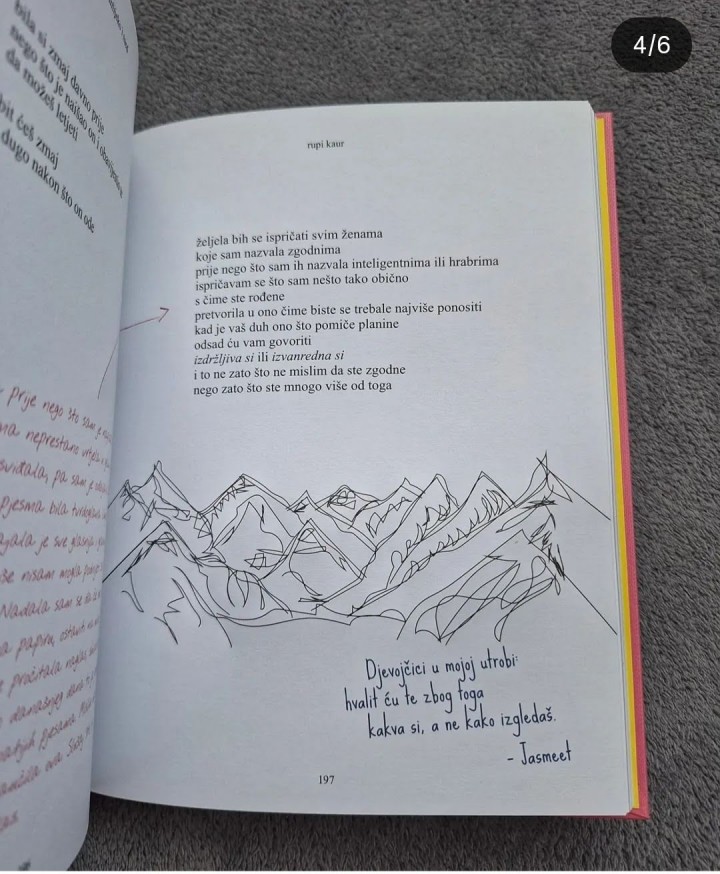 4/6
bila si zmaj davno prije
nego što je naišao on i
da možeš letjeti
bit ćeš zmaj
dugo nakon što on ode
Prije nego što sam je
neprestano
pa sam je
Pjesma bila
je sve
nisam mogla
Nadala sam se da
papira,
pročitala naglas
današnjeg dana
pjesama
rupi kaur
željela bih se ispričati svim ženama
koje sam nazvala zgodnima
prije nego što sam ih nazvala inteligentnima ili hrabrima
ispričavam se što sam nešto tako obično
s čime ste rođene
pretvorila u ono čime biste se trebale najviše ponositi
kad je vaš duh ono što pomiče planine
odsad ću vam govoriti
izdržljiva si ili izvanredna si
i to ne zato što ne mislim da ste zgodne
nego zato što ste mnogo više od toga
Djevojčici u mojoj utrobi:
hvalit ću te zbog toga
kakva si, a ne kako izgledaš.
- Jasmeet
197